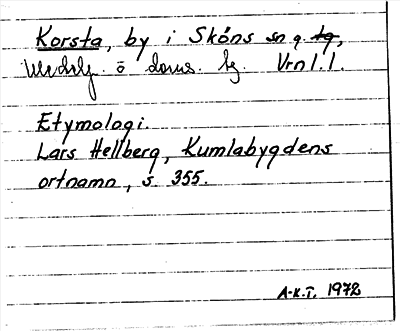 Korsta, by i Sköns sn q. tg,
Medelp. ö doms. bg. Vrnl. l.
Etymologi.
Lars Hellberg, Kumlabygdens
ortnamn, s. 355.
A-K.T. 1972